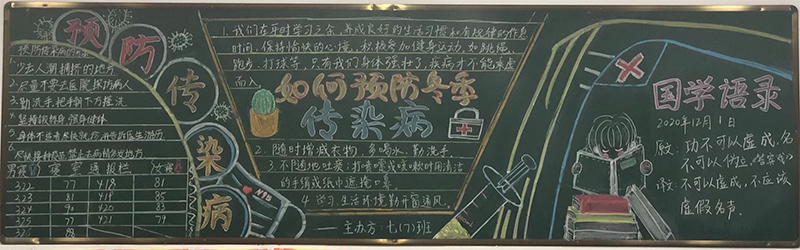 预防传染病
预防传染病的方法
1.少去人潮拥挤的地方
2.尽量不要去医院探访病人
3.勤洗手把手倒下方搓洗
4.坚持锻炼身体强身健体
322 77 418 81
323 81 419 85
324 90 420 83
325 77 421 79
1.我们在平时学习之余,养成良好的生活习惯和有规律的作息
时间,保持愉快的心境,积极参加健身运动,如跳绳、
跑步、打球等,只有我们身体强壮了,疾病才不能乘虚
而入
如何预防冬季
传染病
2.随时增减衣物,多喝水,勤洗手。
3.不随地吐痰;打喷嚏或咳嗽时用清洁
的手绢或纸巾遮掩口鼻。
4.学习、生活环境勤开窗通风。
主办方:七(7)班
国学语录
2020年12月1日
原文:功不可以虚成,名
不可以伪立
译文:不可以虚成,不应该
虚假名声